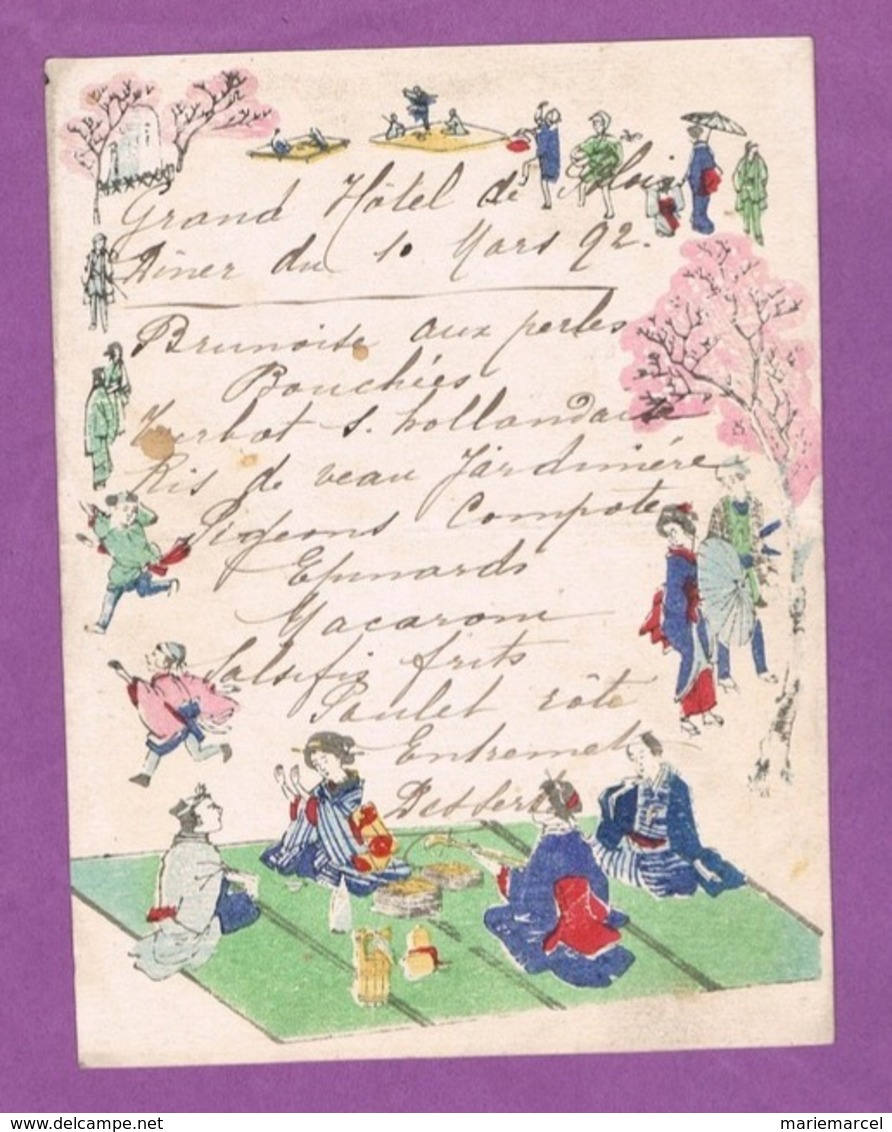 Grand Hôtel de Blois
Dîner du 1. Mars 92.
Brunoise aux perles
Bouchées
Turbot s. hollandaise
Ris de veau Jardinière
Pigeons Compote
Epinards
Macaroni
Salsifis frits
Poulet rôti
Entremet
Dessert
mariemarcel